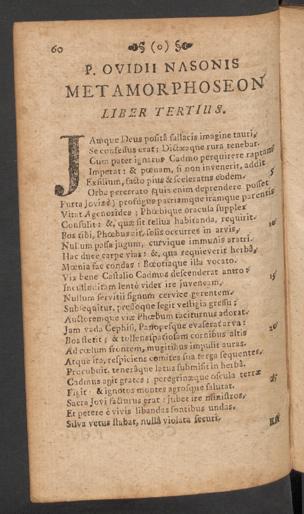 60 (o)
P. OVIDII NASONIS
METAMORPHOSEON
LIBER TERTIUS.
JAmque Deus posità fallacis imagine tauri,
Se confessus erat; Dictæaque rura tenebat.
Cum pater ignarus Cadmo perquirere raptam
Imperat: & pœnam, si non invenerit, addit
Exilium, facto pius & sceleratus eodem. 5
Orbe pererrato (quis enim deprendere posset
Furta Jovis?) profugus patriamque iramque parentis
Vitat Agenorides; Phœbique oracula supplex
Consulit: &, quæ sit tellus habitanda, requirit.
Bos tibi, Phœbus ait, solis occurret in arvis, 10
Nullum passa jugum, curvique immunis aratri.
Hac duce carpe vias: &, qua requieverit herbâ,
Mœnia fac condas: Bœotiaque illa vocato.
Vix bene Castalio Cadmus descenderat antro:
Incustoditam lentè videt ire juvencam, 15
Nullum servitii signum cervice gerentem.
Subsequitur, pressoque legit vestigia gressu;
Auctoremque viæ Phœbum taciturnus adorat.
Jam vada Cephisi, Panopesque evaserat arva:
Bos stetit; & tollens spatiosam cornibus altis 20
Ad cœlum frontem, mugitibus impulit auras.
Atque ita, respiciens comites sua terga sequentes,
Procubuit, teneráque latus submisit in herbâ.
Cadmus agit grates; peregrinæque oscula terræ
Figit & ignotos montes agrosque salutat. 25
Sacra Jovi facturus erat: jubet ire ministros,
Et petere è vivis libandas fontibus undas.
Silva vetus stabat, nullâ violata securi,